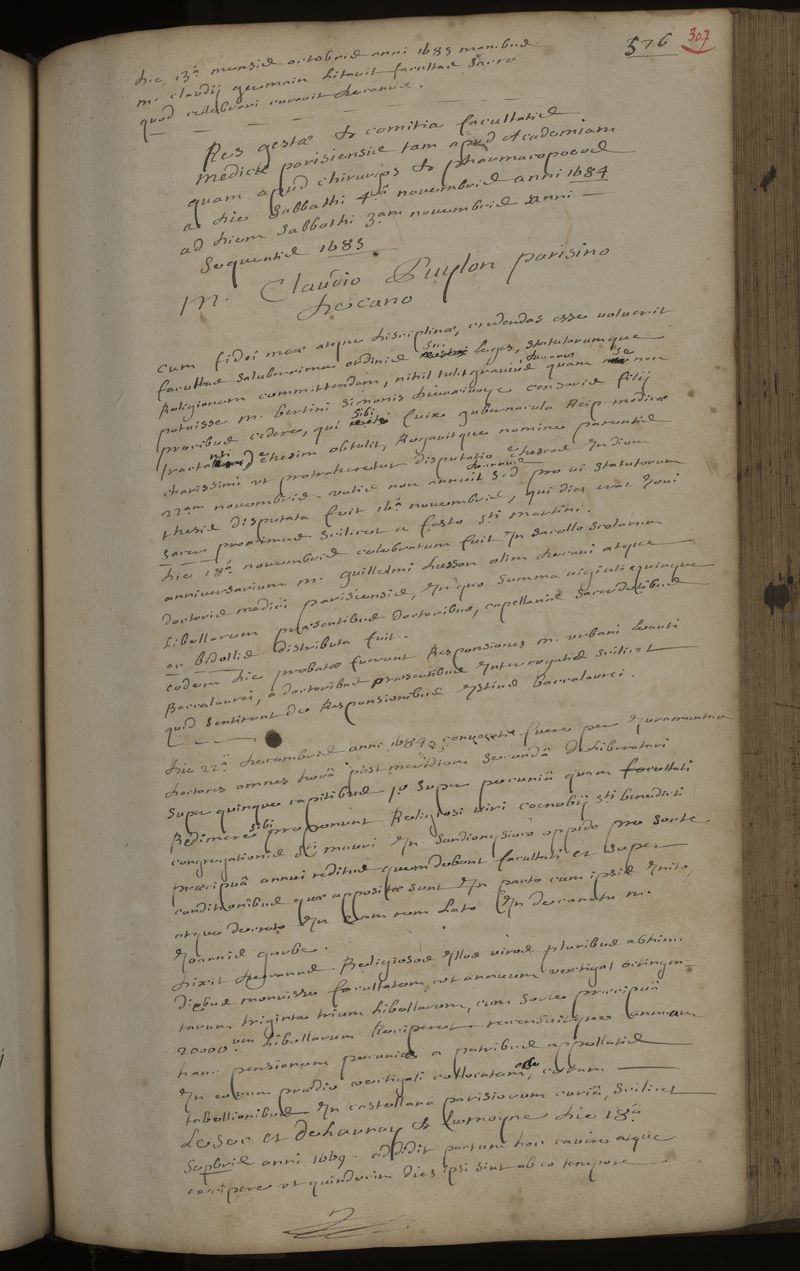 576 307
die 13.a mensis octobris anni 1685 manibus
m. claudij germain litavit facultas sacro
quod celebrari curavit decanus.
Res gestae et comitia facultatis
medicae parisiensis tam apud Academiam
quam apud chirurgos et pharmacopoeos
a die sabbathi 4.a novembris anni 1684
ad diem sabbathi 3.am novembris anni
sequentis 1685
m. Claudio Puylon parisino
decano
cum fidei meae atque disciplinae, credendas esse voluerit
facultas saluberrima ordinis sui leges, statutorumque
Religionem committendam, nihil tulit gravius decanus quam se non
potuisse m. bertini simonis dieuxivoye censoris filij
precibus cedere, qui sibi
thesim obtulit, Rogavitque nomine parentis
charissimi ut protraheretur disputatio theseos in diem
22.am novembris. votis non annuit decanus sed pro vi statutorum
thesis disputata fuit 16.a novembris, qui dies erat Jovi
sacer proximus scilicet a festo s.ti martini.
die 18.a novembris celebratum fuit in sacello scolarum
anniversarium m. guillelmi husson olim decani atque
doctoris medici parisiensis, in quo summa viginti quinque
libellarum praesentibus doctoribus, capellanis sacerdotibus
ac bidellis distributa fuit.
eodem die probatae fuerunt Responsiones m. urbani leauté
Baccalaurei, a doctoribus praesentibus interrogatis scilicet
quid sentirent de Responsionibus istius baccalaurei.
die 22.a decembris anni 1684 convocati fuere per juramentum
doctores omnes horâ post meridiem secundâ deliberaturi
super quinque capitibus 1.o super pecuniâ quam facultati
Redimere sibi proponunt Religiosi viri coenobij s.ti benedicti
congregationis s.ti mauri in sandionysiaco oppido pro sorte
praecipuâ annui reditus quem debent facultati et super
conditionibus quae appositae sunt in pacto cum ipsis inito,
atque decreto in eam rem lato in decanatu m.
Joannis garbe.
dixit decanus Religiosos illos viros pluribus abhinc
diebus monuisse facultatem, ut annuum vectigal octingentarum
triginta trium libellarum, cum sorte praecipuâ
20000.um libellarum Reciperet recensuitque annuam
hanc pensionem pecuniae a patribus appellatis
in eorum praedio vectigali collocatam esse, coram
tabellionibus in castellana parisiorum curiâ, scilicet
Lesec et de Launay et Lemoyne die 18.a
aprilis anni 1669. addidit pactum hoc cavere atque
accipere ut quindecim dies ipsi sint ab eo tempore